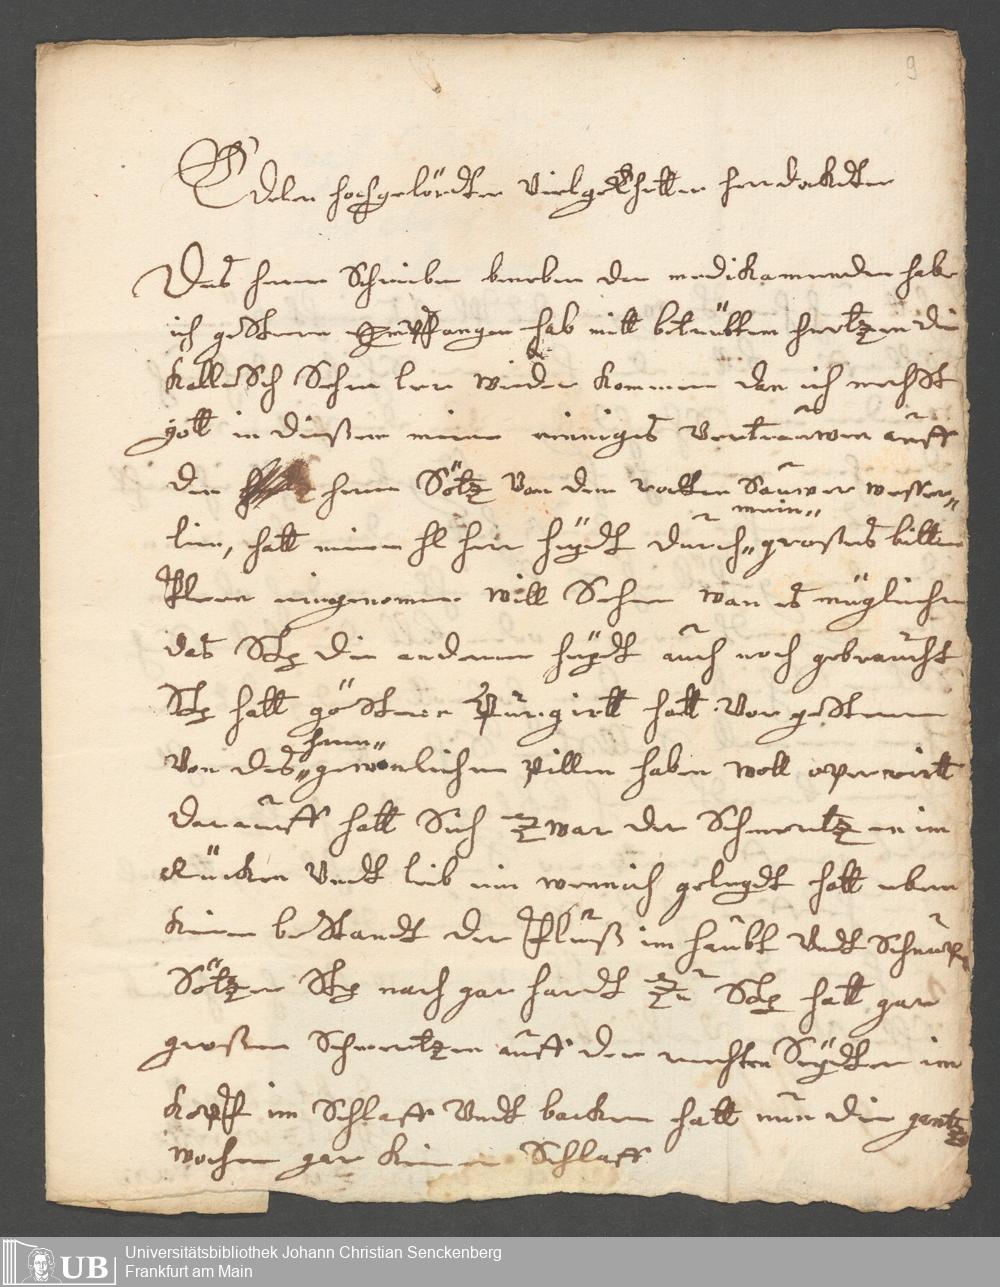 9
Edeler hochgelördter vielgeEhrtter herr docktter
Das herrn Schreiben beneben den medikamenden habe
ich gestern Empfangen hab mitt betrübttem hertzen die
Schlar wieder kommen dan ich nechst
gott in diesem mein einiges vertrauwen auff
den herrn Söltz von dem rotten Sauwer wasser„
lein, hatt mein hl herr heüdt durch„ mein„ großes bitten
eingenomen will Sehen wan es müglichen
das Sey die anderen heüdt auch noch gebraucht
Sey hatt göstern Purgirtt hatt vorgestern
von des„ herrn„ gewonlichen pillen haben woll operirtt
darauff hatt Sich zwar der Schmertzen im
Rücken Vndt leib ein wennich gelegdt hatt aben
keinen bestandt der Fluß im haubt Vndt
Sey noch gar hardt zu Setz hatt gar
großen Schmertzen auff der rechten Seydten im
kopff im Schlaff Vndt backen hatt nun die gantz
wochen gar keinen Schlaff
UB
Universitätsbibliothek Johann Christian Senckenberg
Frankfurt am Main